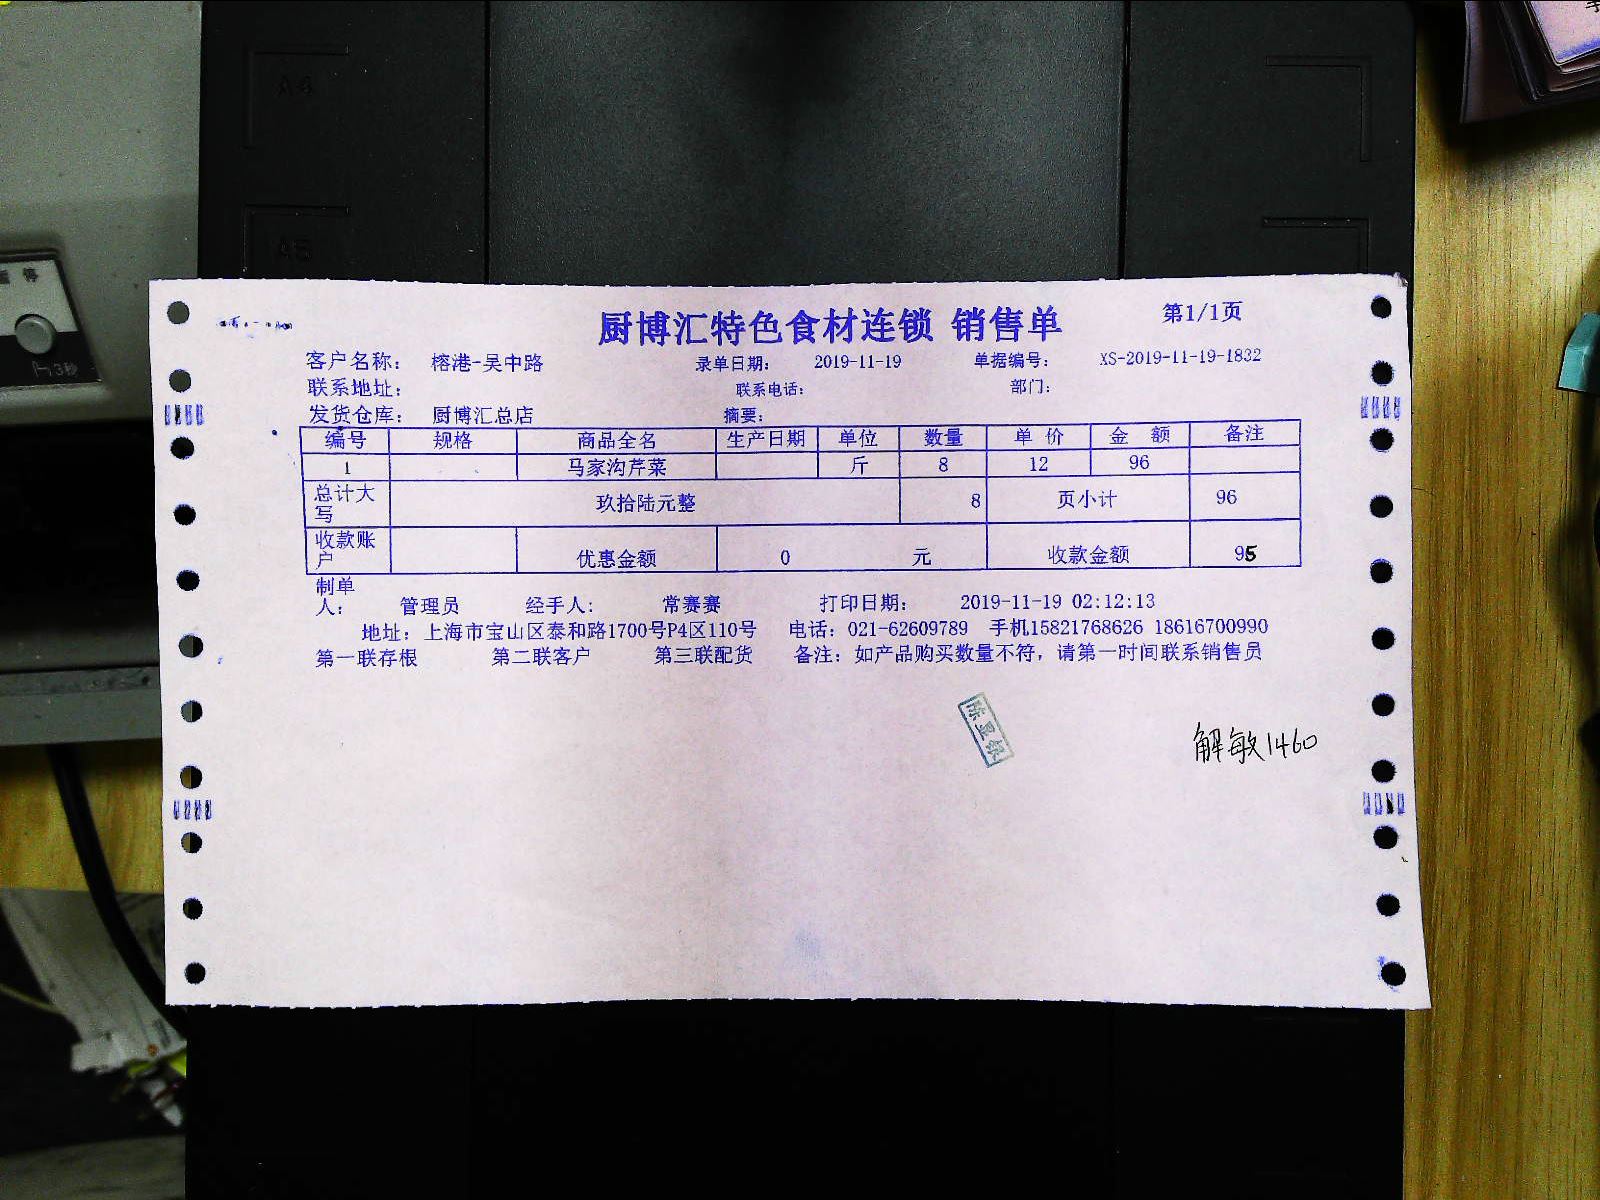 A4
A5
停
3秒
厨博汇特色食材连锁 销售单
第1/1页
客户名称： 榕港-吴中路 录单日期： 2019-11-19 单据编号： XS-2019-11-19-1832
联系地址： 联系电话： 部门：
发货仓库： 厨博汇总店 摘要：
编号 规格 商品全名 生产日期 单位 数量 单价 金额 备注
1 马家沟芹菜 斤 8 12 96
总计大写 玖拾陆元整 8 页小计 96
收款账户 优惠金额 0 元 收款金额 95
制单人： 管理员 经手人： 常赛赛 打印日期： 2019-11-19 02:12:13
地址：上海市宝山区泰和路1700号P4区110号 电话：021-62609789 手机15821768626 18616700990
第一联存根 第二联客户 第三联配货 备注：如产品购买数量不符，请第一时间联系销售员
解敏1460